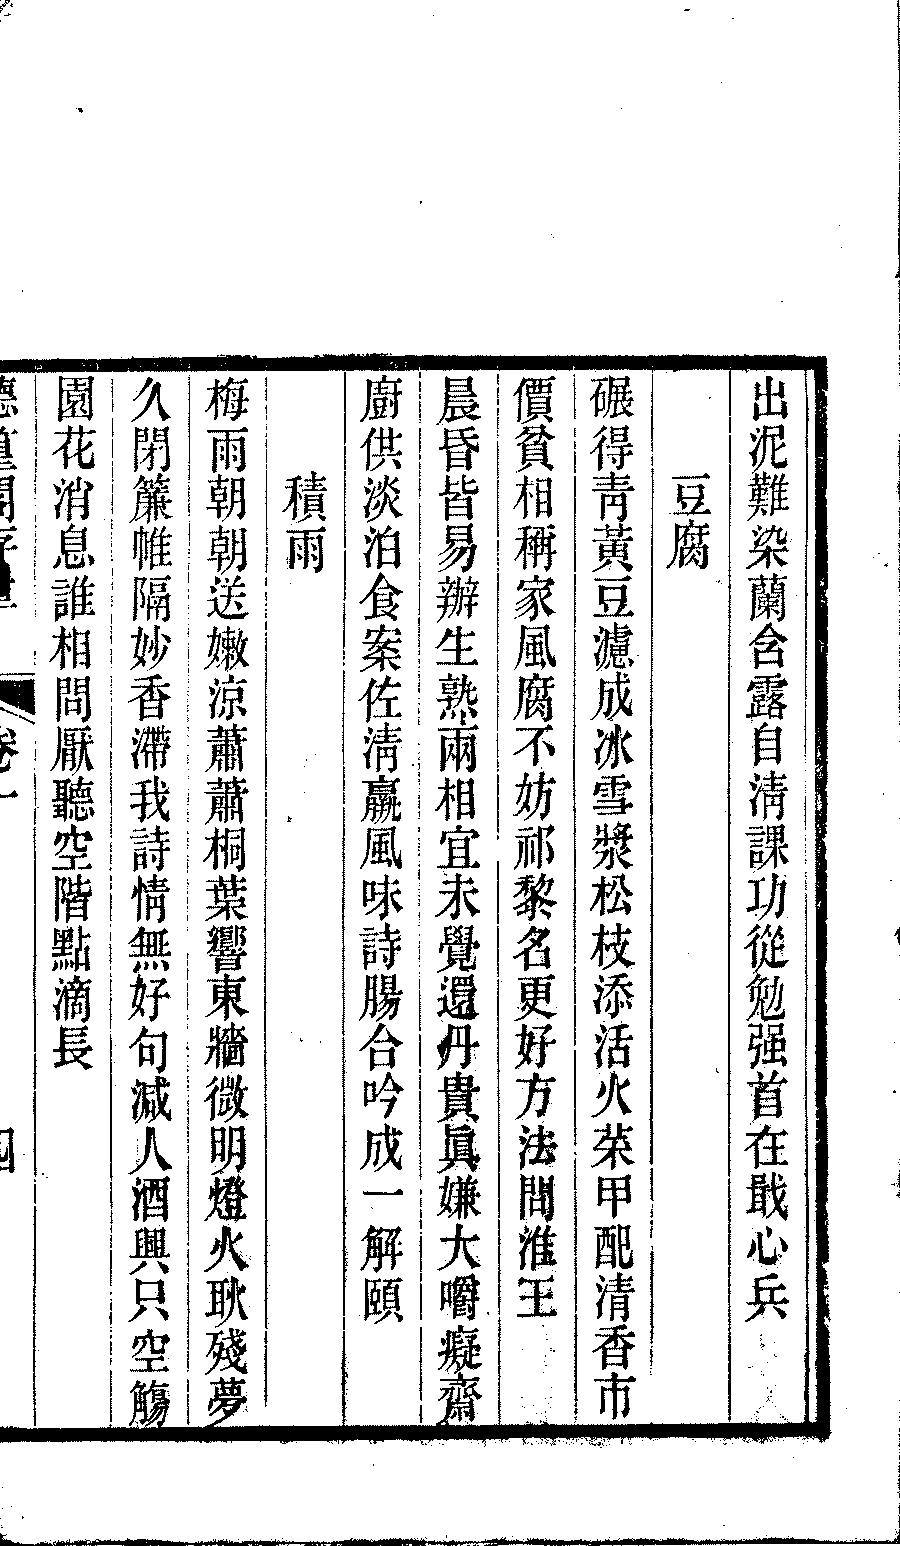 出泥難染蘭含露自淸課功從勉强首在戢心兵
豆腐
碾得靑黃豆濾成冰雪漿松枝添活火菜甲配清香市
價貧相稱家風腐不妨祁黎名更好方法問淮王
晨昏皆易辦生熟兩相宜未覺還丹貴眞嫌大嚼癡齋
廚供淡泊食案佐淸羸風味詩腸合吟成一解頤
積雨
梅雨朝朝送嫩涼蕭蕭桐葉響東牆微明燈火耿殘夢
久閉簾帷隔妙香滯我詩情無好句減人酒興只空觴
園花消息誰相問厭聽空階點滴長
卷一
四